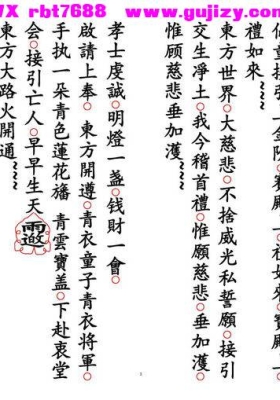 VX rbt7688 www.gujizy.com
禮如來
東方世界○大慈悲○不捨威光私誓願○接引
交生凈土○我今稽首禮○惟願慈悲○垂加護○
惟願慈悲垂加護
孝士虔誠○明燈一盞○钱財一會○
啟請上奉○東方開遵○青衣童子青衣將軍○
手执一朵青色蓮花旛 青雲寶盖○下赴哀堂
会○接引亡人○早早生天
東方大路火開通